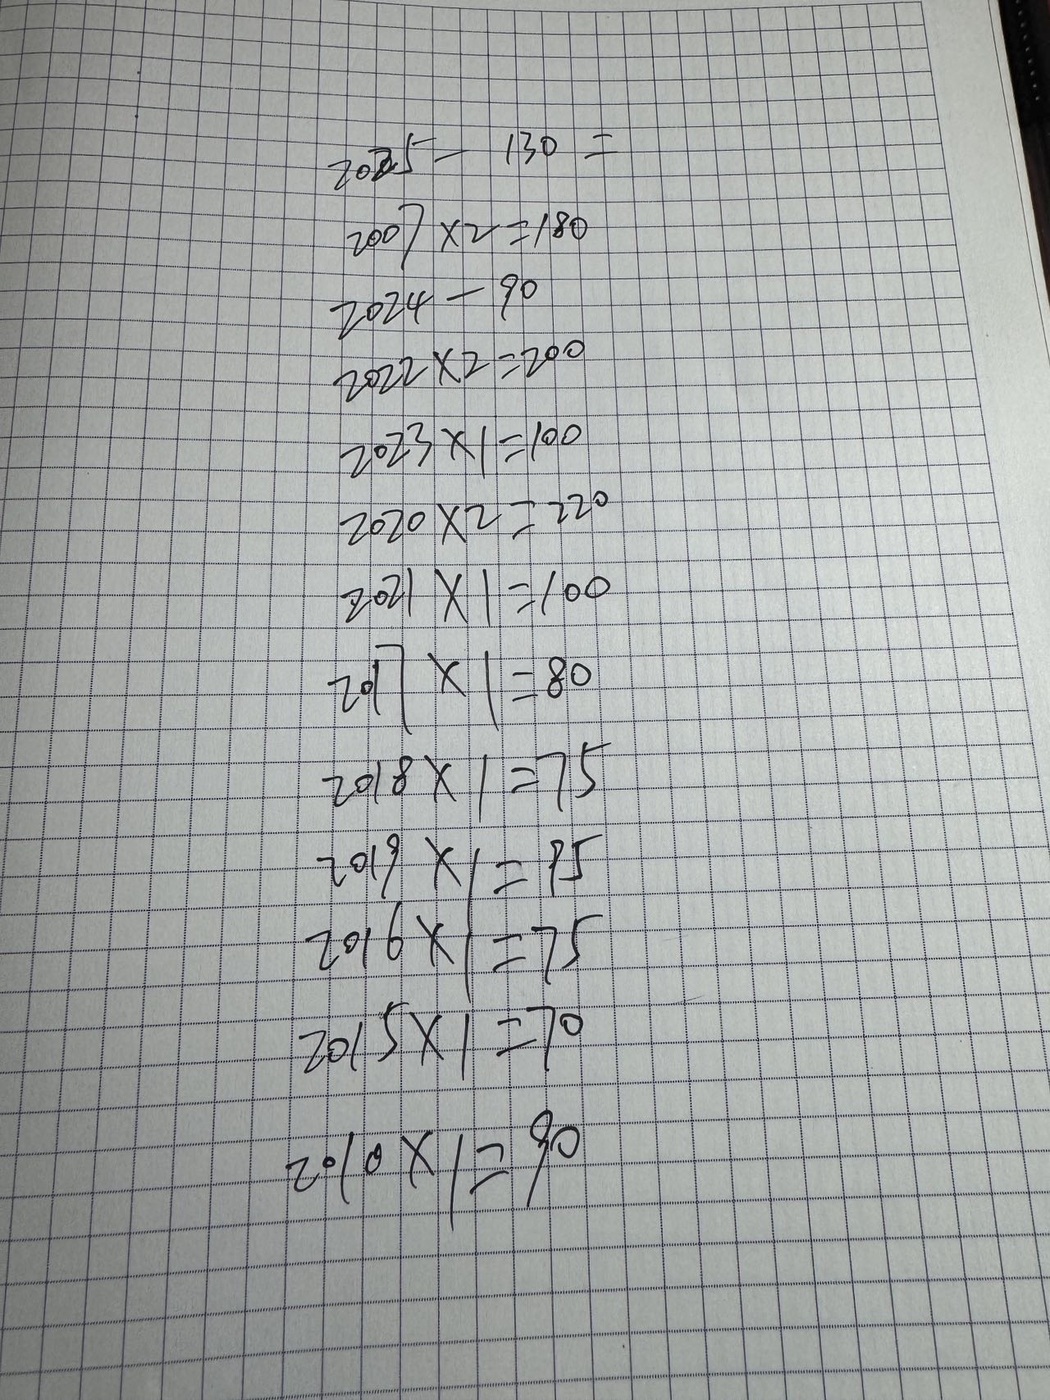 2025 - 130 =
2007 x2 = 180
2024 - 90
2022 x2 = 200
2023 x1 = 100
2020 x2 = 220
2021 x1 = 100
2017 x1 = 80
2018 x1 = 75
2019 x1 = 95
2016 x1 = 75
2015 x1 = 70
2010 x1 = 90